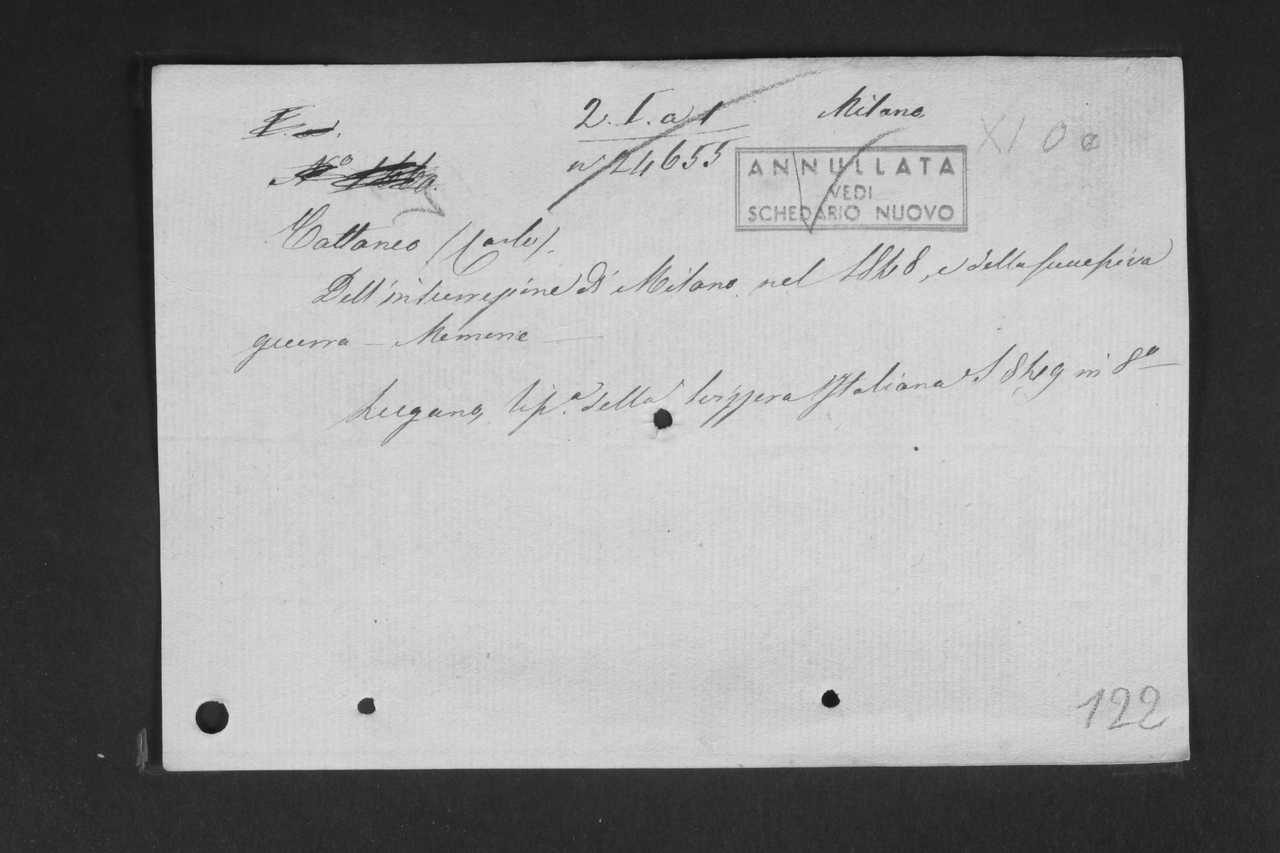 2. I. a 1 Milano
nº 24655
XI 0
ANNULLATA
VEDI
SCHEDARIO NUOVO
Cattaneo (Carlo).
Dell'insurrezione di Milano nel 1848, e della successiva
guerra – Memorie
Lugano, tip.ª della Svizzera Italiana 1849 in 8º
122